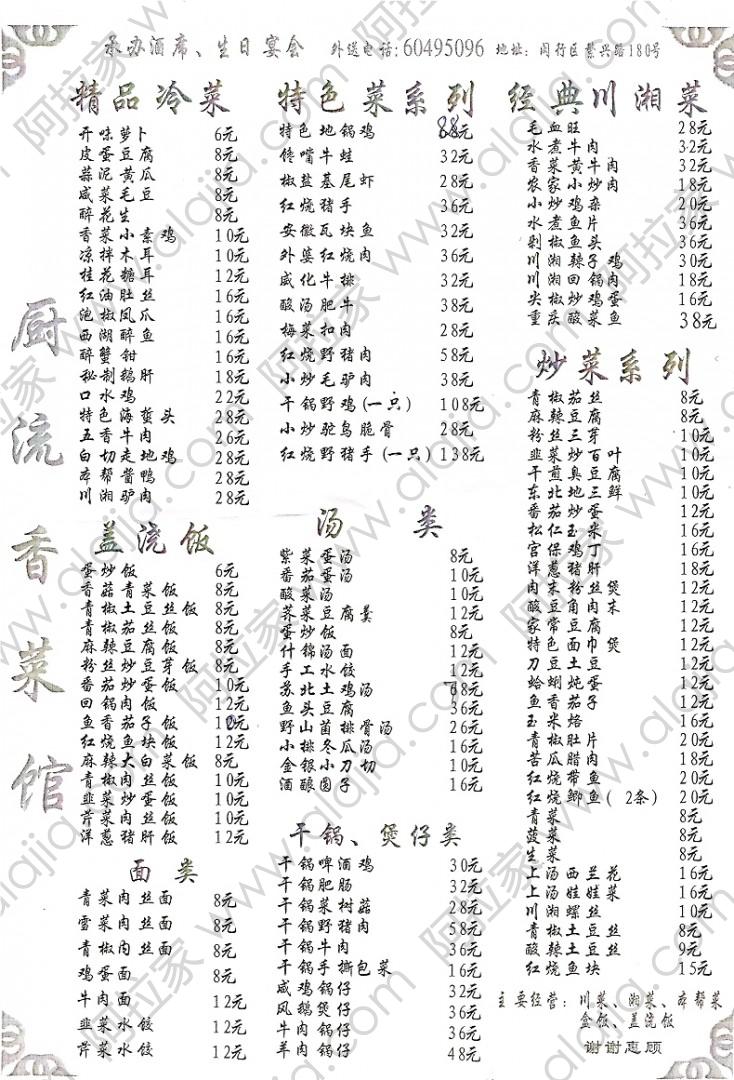 承办酒席、生日宴会 外送电话:60495096 地址:闵行区繁兴路180号
厨流香菜馆
精品冷菜
开味萝卜 6元
皮蛋豆腐 8元
蒜泥黄瓜 8元
咸菜毛豆 8元
醉花生 8元
香菜小素鸡 10元
凉拌木耳 10元
桂花糖耳 12元
红油肚丝 16元
泡椒凤爪 16元
西湖醉鱼 16元
醉蟹钳 16元
秘制鹅肝 18元
口水鸡 22元
特色海蜇头 28元
五香牛肉 26元
白切走地鸡 28元
本帮酱鸭 28元
川湘驴肉 28元
盖浇饭
蛋炒饭 6元
香菇青菜饭 8元
青椒土豆丝饭 8元
青椒茄丝饭 8元
麻辣豆腐饭 8元
粉丝炒豆芽饭 8元
番茄炒蛋饭 10元
回锅肉饭 12元
鱼香茄子饭
红烧鱼块饭 12元
麻辣大白菜饭 8元
青椒肉丝饭 10元
韭菜炒蛋饭 10元
芹菜肉丝饭 10元
洋葱猪肝饭 12元
面类
青菜肉丝面 8元
雪菜肉丝面 8元
青椒肉丝面 8元
鸡蛋面 8元
牛肉面 12元
韭菜水饺 12元
芹菜水饺 12元
特色菜系列
特色地锅鸡 88元
馋嘴牛蛙 32元
椒盐基尾虾 28元
红烧猪手 36元
安徽瓦块鱼 32元
外婆红烧肉 36元
威化牛排 32元
酸汤肥牛 38元
梅菜扣肉 28元
红烧野猪肉 58元
小炒毛驴肉 38元
干锅野鸡(一只) 108元
小炒驼鸟脆骨 28元
红烧野猪手(一只) 138元
汤类
紫菜蛋汤 8元
番茄蛋汤 10元
酸菜汤 10元
荠菜豆腐羹 12元
蛋炒饭 8元
什锦汤面 12元
手工水饺 12元
苏北土鸡汤 68元
鱼头豆腐 36元
野山菌排骨汤 26元
小排冬瓜汤 16元
金银小刀切 10元
酒酿圆子 16元
干锅、煲仔类
干锅啤酒鸡 30元
干锅肥肠 32元
干锅菜树菇 28元
干锅野猪肉 58元
干锅牛肉 36元
干锅手撕包菜 16元
咸鸡锅仔 32元
风鹅煲仔 36元
牛肉锅仔 36元
羊肉锅仔 48元
经典川湘菜
毛血旺 28元
水煮牛肉 32元
香菜黄牛肉 32元
农家小炒肉 18元
小炒鸡杂 20元
水煮鱼片 36元
剁椒鱼头 36元
川湘辣子鸡 30元
川湘回锅肉 18元
尖椒炒鸡蛋 16元
重庆酸菜鱼 38元
炒菜系列
青椒茄丝 8元
麻辣豆腐 8元
粉丝三芽 10元
韭菜炒百叶 10元
干煎臭豆腐 10元
东北地三鲜 10元
番茄炒蛋 12元
松仁玉米 16元
宫保鸡丁 16元
洋葱猪肝 18元
肉末粉丝煲 12元
酸豆角肉末 12元
家常豆腐 12元
特色面巾煲 12元
刀豆土豆 12元
蛤蜊炖蛋 12元
鱼香茄子 12元
玉米烙 16元
青椒肚片 20元
苦瓜腊肉 18元
红烧带鱼 20元
红烧鲫鱼( 2条) 20元
青菜 8元
菠菜 8元
生菜 8元
上汤西兰花 16元
上汤娃娃菜 16元
川湘螺丝 10元
青椒土豆丝 8元
酸辣土豆丝 9元
红烧鱼块 15元
主要经营:川菜、湘菜、本帮菜
盒饭、盖浇饭
谢谢惠顾
阿拉家 www.alajia.com